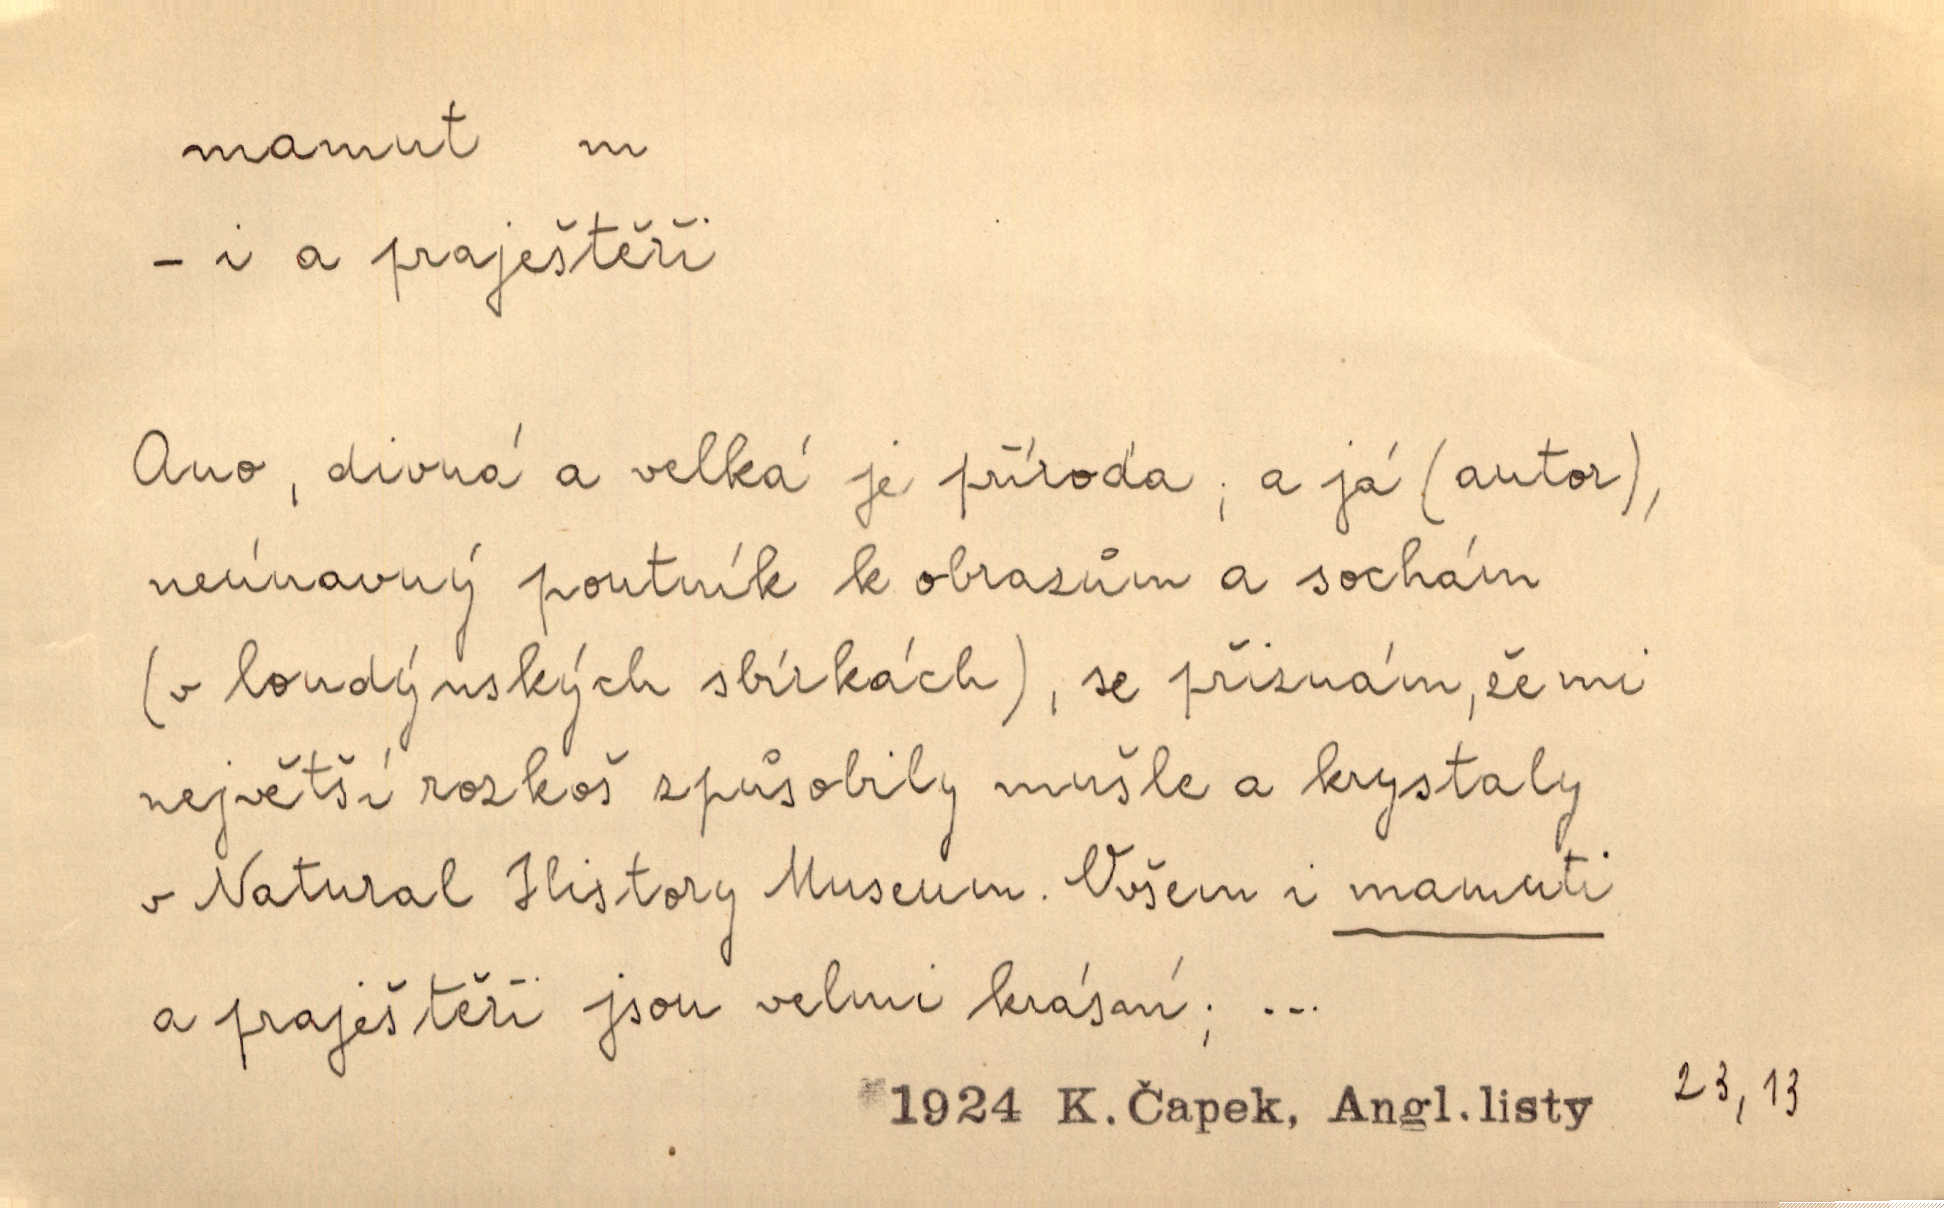 mamut m
- i a praještěři
Ano, divná a velká je příroda; a já (autor),
neúnavný poutník k obrazům a sochám
(v londýnských sbírkách), se přiznám, že mi
největší rozkoš způsobily mušle a krystaly
v Natural History Museum. Ovšem i mamuti
a praještěři jsou velmi krásní; ...
1924 K. Čapek, Angl. listy 23, 13